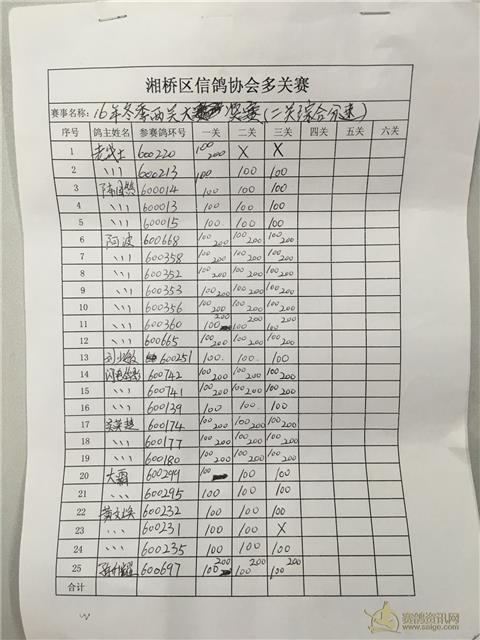 湘桥区信鸽协会多关赛
赛事名称: 16年冬季两关大奖赛(二关综合分速)
序号 鸽主姓名 参赛鸽环号 一关 二关 三关 四关 五关 六关
1 老战士 600220 100 200 X X
2 〃 600213 100 100 100
3 600014 100 100 100
4 〃 600013 100 100 100
5 〃 600015 100 100 100
6 阿波 600668 100 200 100 200 100 200
7 〃 600358 100 200 100 200 100 200
8 〃 600352 100 200 100 200 100 200
9 〃 600353 100 200 100 200 100 200
10 〃 600356 100 200 100 200 100 200
11 〃 600360 100 200 100 200 100 200
12 〃 600665 100 200 100 200 100 200
13 600251 100 100 100
14 600742 100 200 100 200 100 200
15 〃 600741 100 200 100 200 100 200
16 〃 600139 100 100 100
17 600174 100 200 100 200 100 200
18 〃 600177 100 200 100 200 100 200
19 〃 600180 100 200 100 200 100 200
20 大霸 600299 100 100 100
21 〃 600295 100 100 100
22 黄文 600232 100 100 100
23 〃 600231 100 100 X
24 〃 600235 100 100 100
25 600697 100 200 100 200 100 200
合计
赛鸽资讯网
www.saige.com